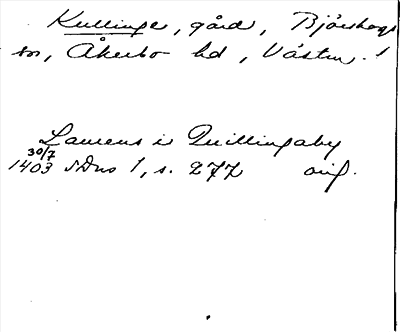 Kullinge, gård, Björskogs
sn, Åkerbo hd, Västm. l
Laurens i Quillingaby
30/7
1403 SDns 1, s. 277 orig.